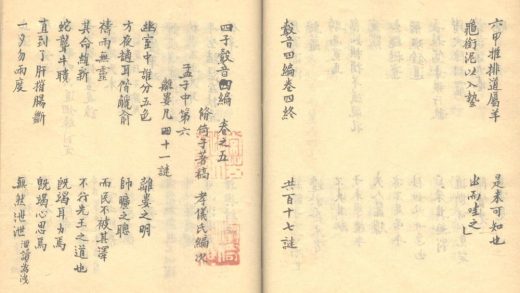 六甲推排道屬羊 是未可知也
龜銜泥以入蟄 出而哇之
鷇音四編卷四終 共百十七謎
四子鷇音四編 卷之五
脩倚子著稿 孝儀氏編次
孟子中第六
離婁凡四十一謎
幽室中誰分五色 離婁之明
方夜讀耳偕 師曠之聰
禱雨無靈 而民不被其澤
其命維新 不行先王之道也
蛇聾牛聵 既竭耳力焉
直到了肝摧腸斷 既竭心思焉
一夕勿兩度 無然泄泄